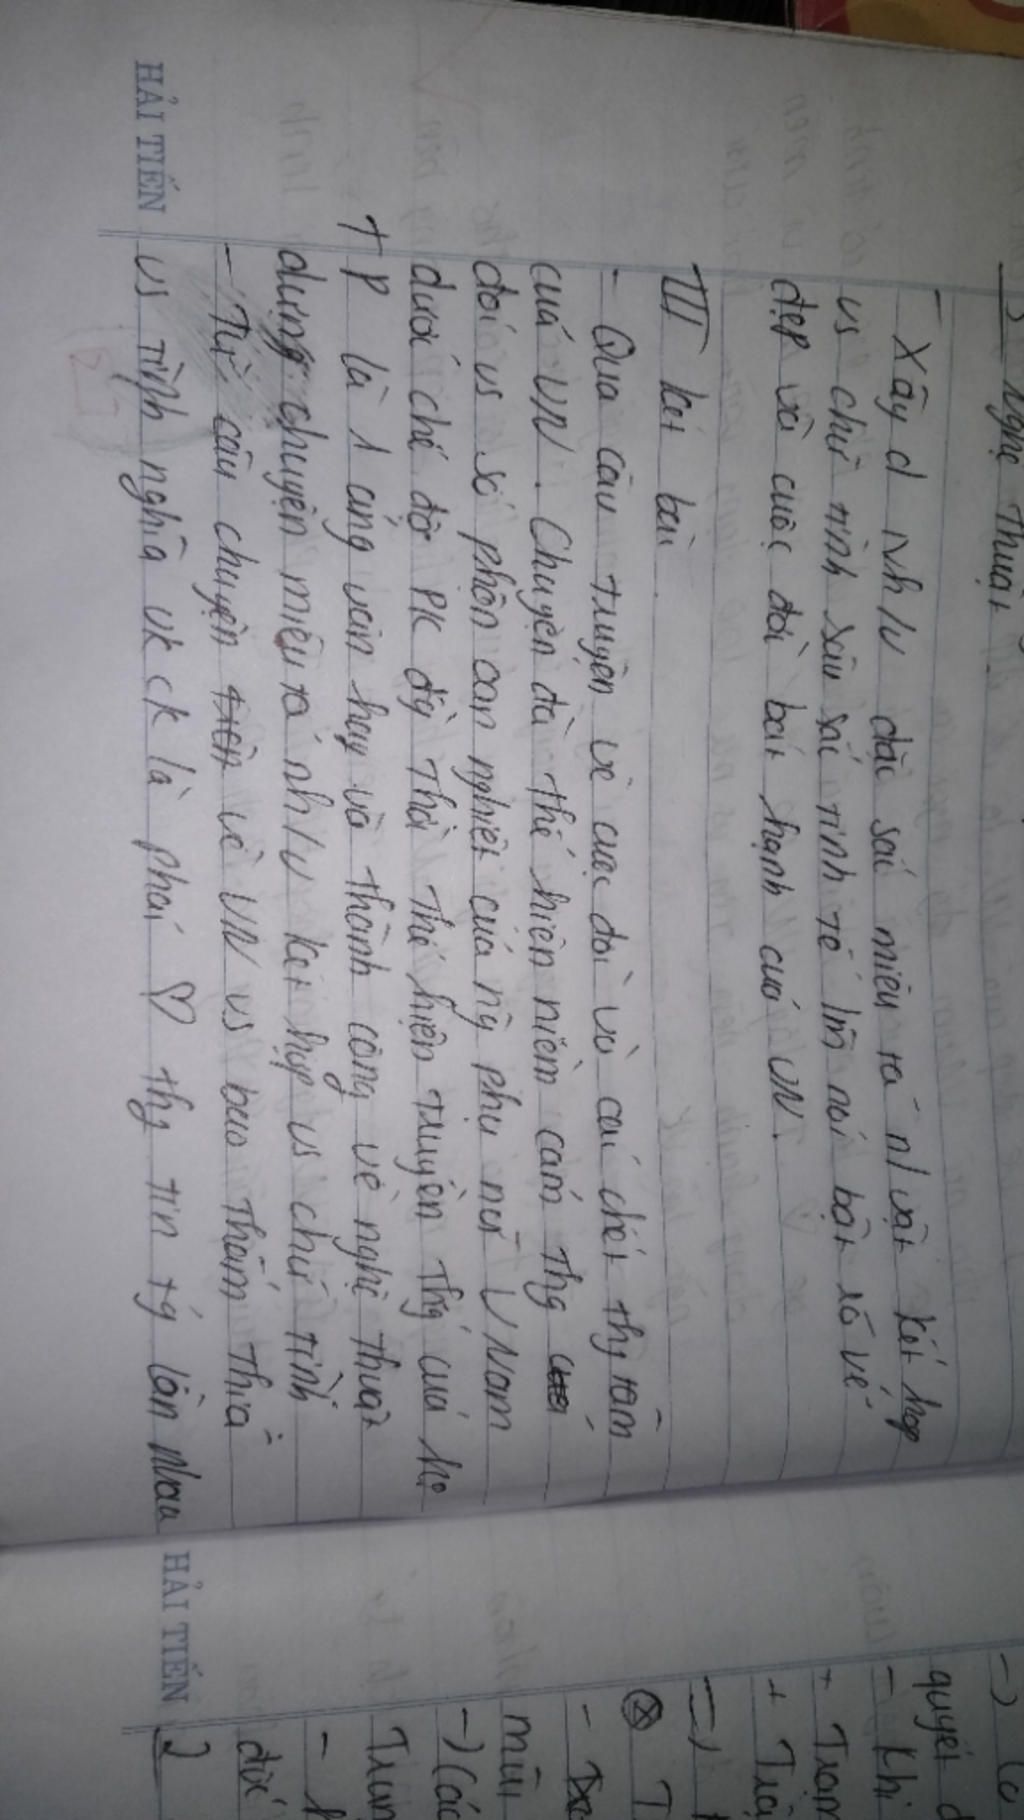 3) Nghệ thuật.
- Xây d nh/v đặc sắc miêu tả n/vật kết hợp
vs chữ tình sâu sắc tinh tế làm nổi bật rõ vẻ
đẹp và cuộc đời bất hạnh của VN.
III kết bài.
- Qua câu truyện về cuộc đời và cái chết thg tâm
của VN. Chuyện đã thể hiện niềm cảm thg
đối vs số phận oan nghiệt của ng phụ nữ V Nam
dưới chế độ PK đg thời thể hiện truyền thg của họ
TP là 1 áng văn hay và thành công về nghệ thuật
dựng chuyện miêu tả nh/v kết hợp vs chữ tình
- Từ câu chuyện về VN vs bao thấm thía
vs tình nghĩa vk ck là phải ♡ thg tin tg lẫn nhau
HẢI TIẾN
quyết
- Khi
+ Trạm
+
⊗ T
-
mũi
-) Các
Trun
-
đức
HẢI TIẾN